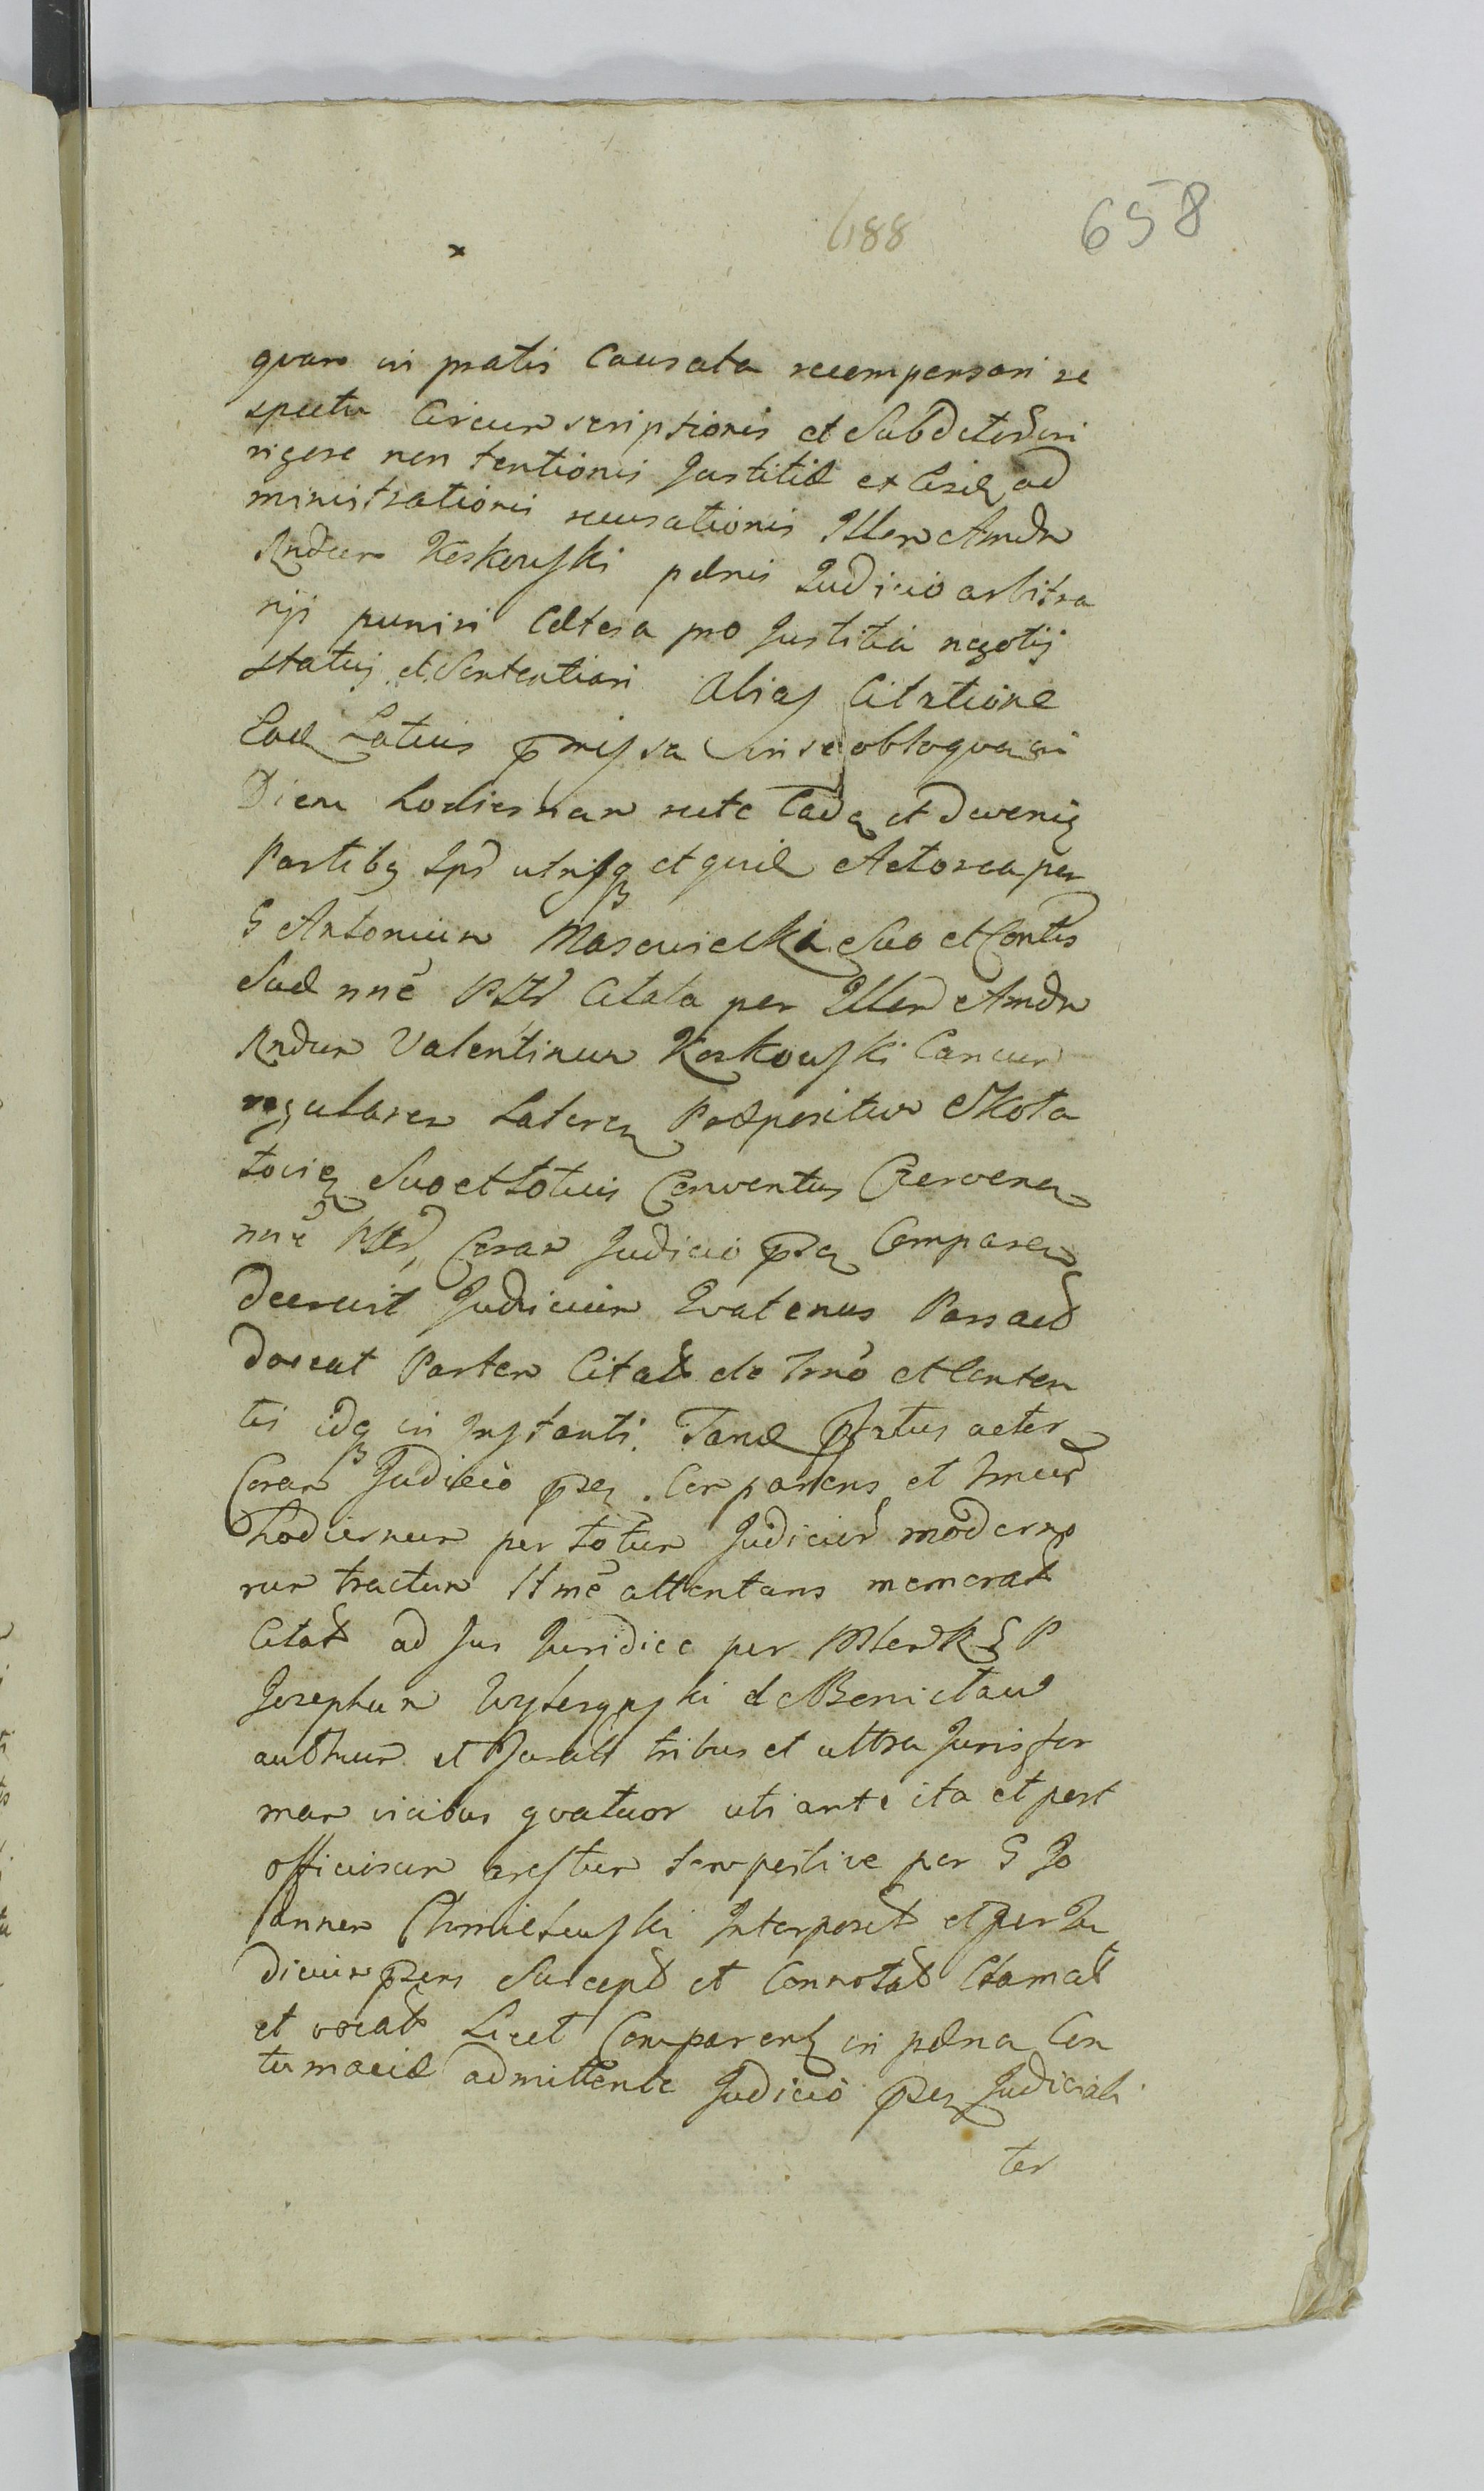 688
658
quam in pratis Causata recompensari re
spectu Circumscriptionis et
rigore non tentionis Justitiæ et ad
ministrationis recusationis Illem Amdm
Rndum Koskowski pœnis Judicio arbitra
rij puniri Cætera pro Justitia negotij
statuj et Sententiari Alias Citatione
Eadem Latius præmissa in se obloqua ai
Diem hodiernam recte Caden et
Partibus Ipsis utrisque et quidem Actorea per
G Antonium Masowiecki Suo et Contis
Suæ nne Citata per Illem Amdm
Rndum Valentinum Koskowski Canum
regularem Lateren Præpositum
Suo et totius Conventus Czerwenen
nne Coram Judicio pren Comparen
Decrevit Judicium Quatenus Pars act
doceat Partem Citatam de Trno et Conten
tis idque in Instanti. Tandem pfatus actor
Coram Judicio pren Comparens et Trnum
hodiernum per totum Judiciorum moderno
rum tractum ltme attentans memorat
Citat ad Jus Juridice per G P
Josephum de
authum et Jurat tribus et ultra Juris for
mam vicibus quatuor uti ante ita et post
officiosum arestum tempestive per G Jo
annem Chmielewski Interposit et per Ju
dicium prens Suscept et Connotat Clamat
et vocat Licet Comparent in pœna Con
tumaciæ admittente Judicio pren Judiciali
ter